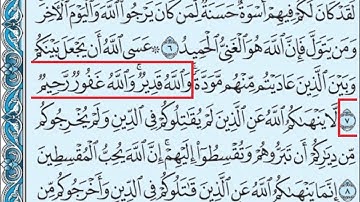 لَقَدْ كَانَ لَكُمْ فِيهِمْ أُسْوَةٌ حَسَنَةٌ لِّمَن كَانَ يَرْجُوا۟ ٱللَّهَ وَٱلْيَوْمَ ٱلْـَٔاخِرَ
وَمَن يَتَوَلَّ فَإِنَّ ٱللَّهَ هُوَ ٱلْغَنِىُّ ٱلْحَمِيدُ ٦ عَسَى ٱللَّهُ أَن يَجْعَلَ بَيْنَكُمْ
وَبَيْنَ ٱلَّذِينَ عَادَيْتُم مِّنْهُم مَّوَدَّةً وَٱللَّهُ قَدِيرٌ وَٱللَّهُ غَفُورٌ رَّحِيمٌ
٧ لَّا يَنْهَىٰكُمُ ٱللَّهُ عَنِ ٱلَّذِينَ لَمْ يُقَـٰتِلُوكُمْ فِى ٱلدِّينِ وَلَمْ يُخْرِجُوكُم
مِّن دِيَـٰرِكُمْ أَن تَبَرُّوهُمْ وَتُقْسِطُوٓا۟ إِلَيْهِمْ إِنَّ ٱللَّهَ يُحِبُّ ٱلْمُقْسِطِينَ
٨ إِنَّمَا يَنْهَىٰكُمُ ٱللَّهُ عَنِ ٱلَّذِينَ قَـٰتَلُوكُمْ فِى ٱلدِّينِ وَأَخْرَجُوكُم مِّن